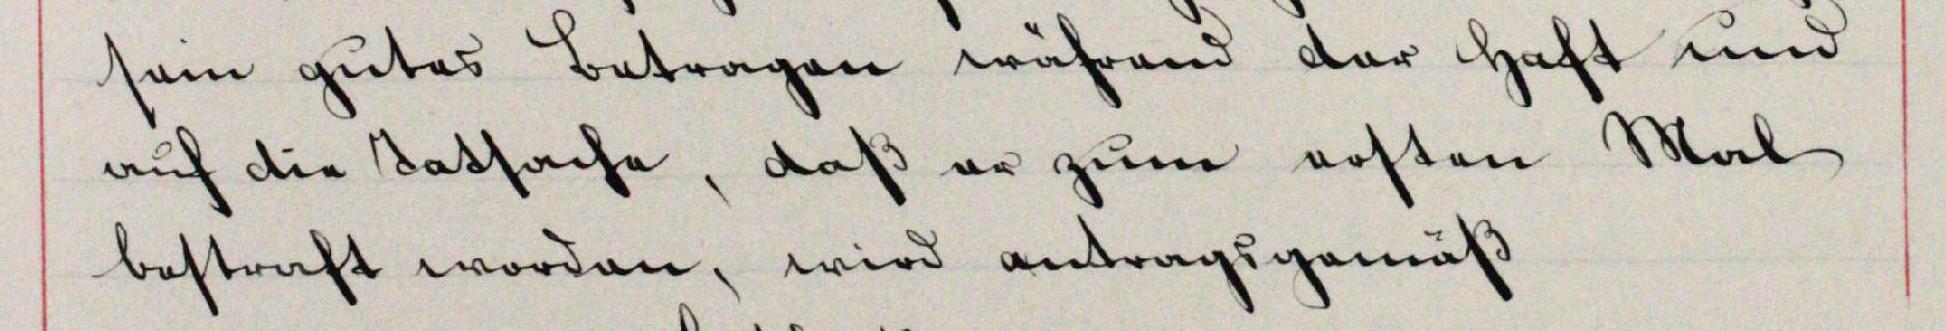 sein gutes Betragen während der Haft und
auf die Tatsache, daß er zum ersten Mal
bestraft worden, wird antragsgemäß